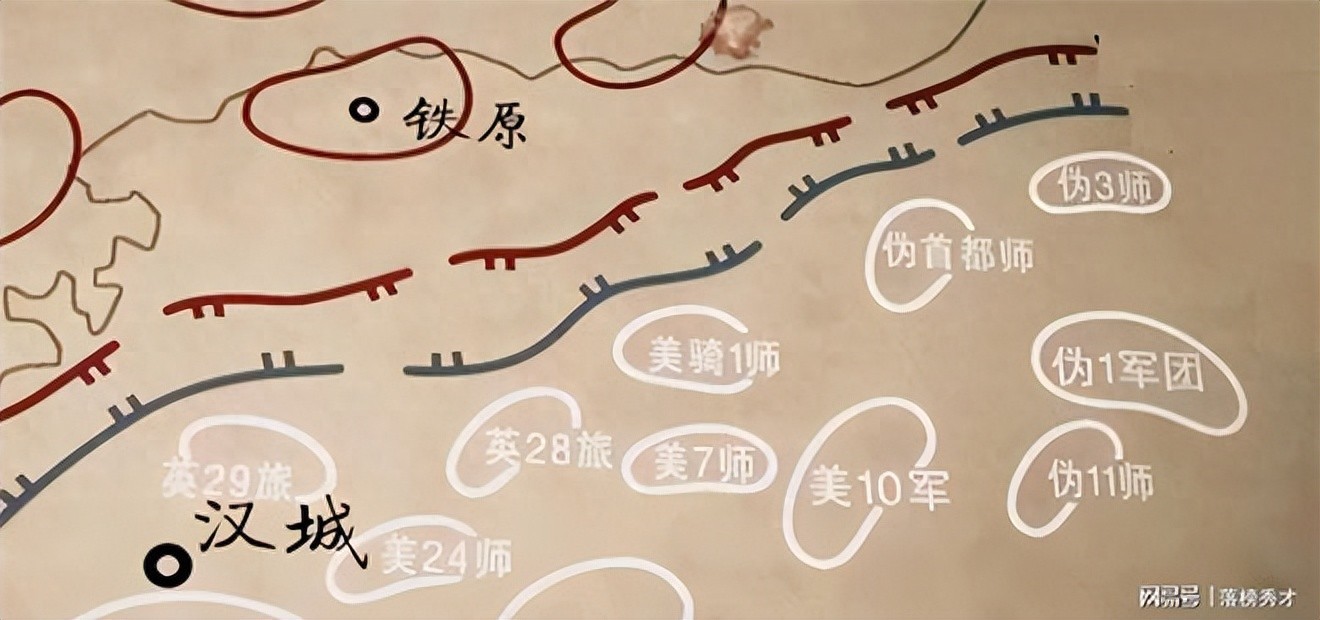 铁原
伪3师
伪首都师
美骑1师
伪1军团
英28旅
英29旅
美7师
美10军
伪11师
汉城
美24师
网易号 | 落榜秀才